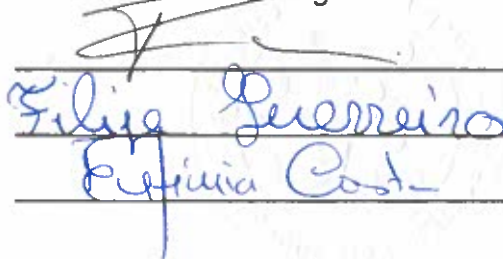 Filipe Guerreiro
Eufémia Costa